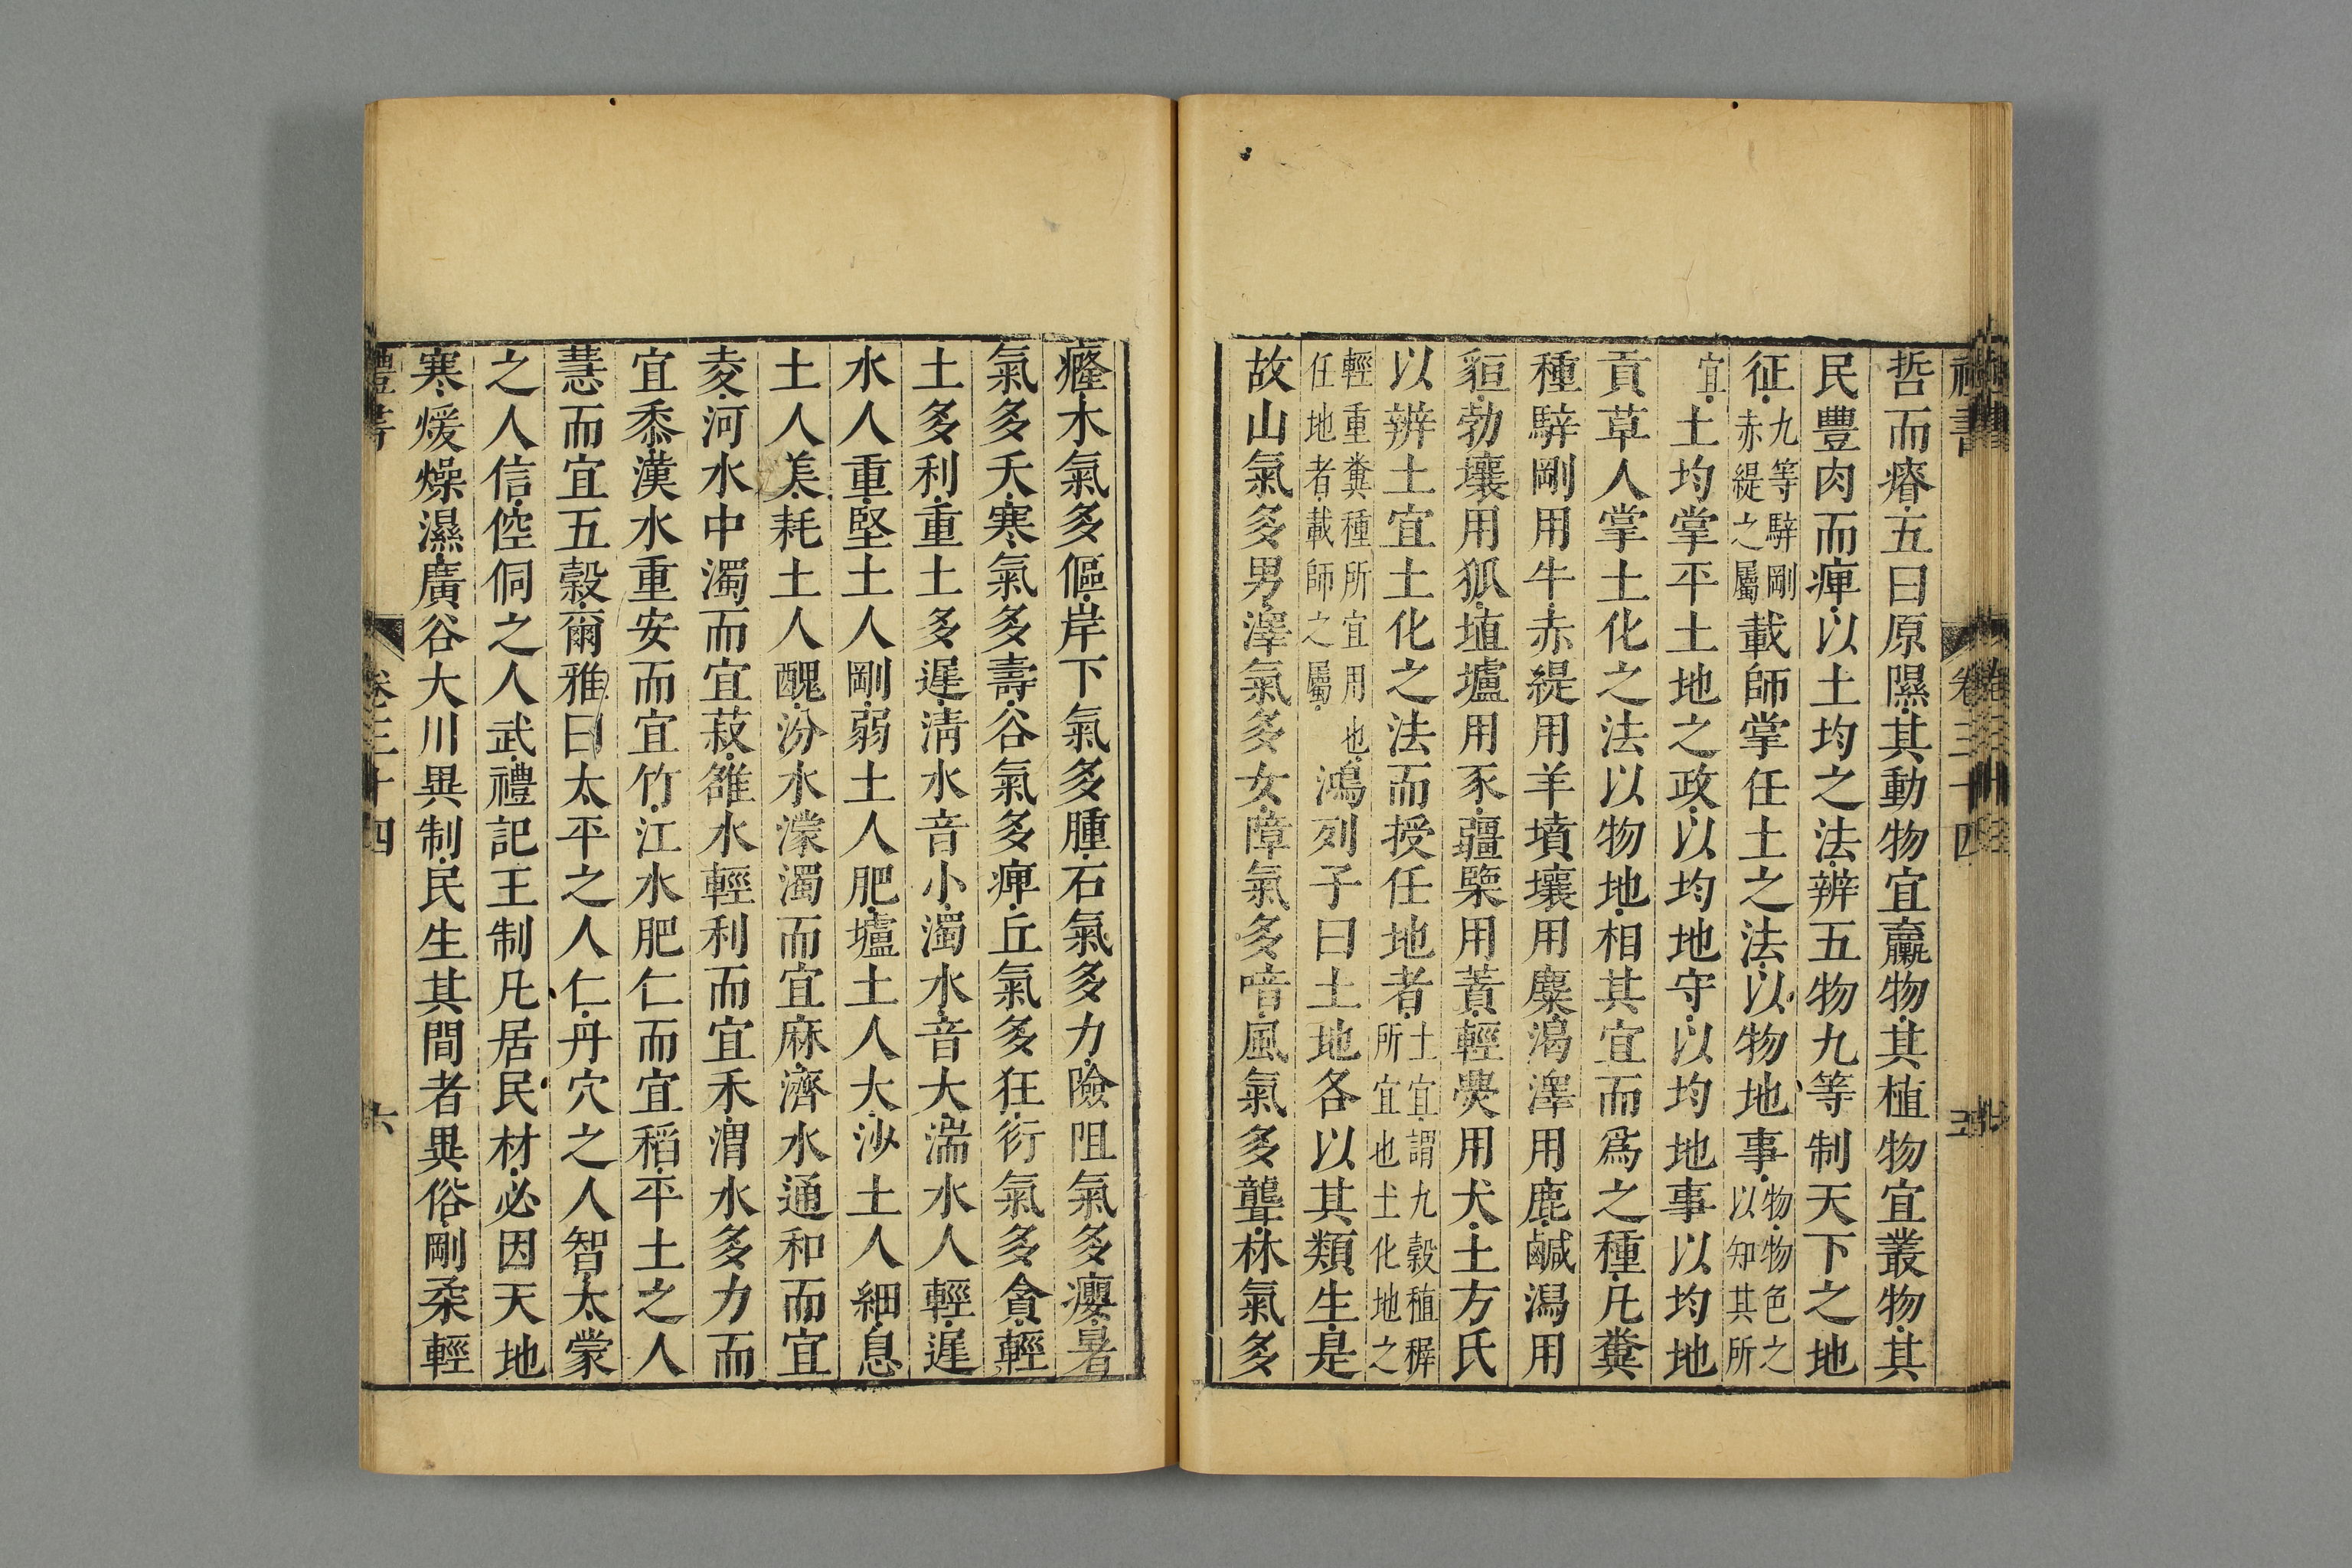 哲而瘠五曰原隰其動物宜臝物其植物宜叢物其
民豐肉而痺以土均之法辨五物九等制天下之地
征九等騂剛赤緹之屬載師掌任土之法以物地事物物色之以知其所
宜土均掌平土地之政以均地守以均地事以均地
貢草人掌土化之法以物地相其宜而爲之種凡糞
種騂剛用牛赤緹用羊墳壤用麋渴澤用鹿鹹潟用
貆勃壤用狐埴壚用豕疆㯺用蕡輕㷱用犬土方氏
以辨土宜土化之法而授任地者土宜謂九穀稙穉所宜也土化地之
輕重糞種所宜用也任地者載師之屬鴻列子曰土地各以其類生是
故山氣多男澤氣多女障氣多喑風氣多聾林氣多
禮書
卷三十四
五
癃木氣多傴岸下氣多腫石氣多力險阻氣多癭暑
氣多夭寒氣多壽谷氣多痺丘氣多狂衍氣多貪輕
土多利重土多遲淸水音小濁水音大湍水人輕遲
水人重堅土人剛弱土人肥壚土人大沙土人細息
土人美耗土人醜汾水濛濁而宜麻濟水通和而宜
麥河水中濁而宜菽雒水輕利而宜禾渭水多力而
宜黍漢水重安而宜竹江水肥仁而宜稻平土之人
慧而宜五穀爾雅曰太平之人仁丹穴之人智太蒙
之人信倥侗之人武禮記王制凡居民材必因天地
寒煖燥濕廣谷大川異制民生其間者異俗剛柔輕
禮書
卷三十四
六